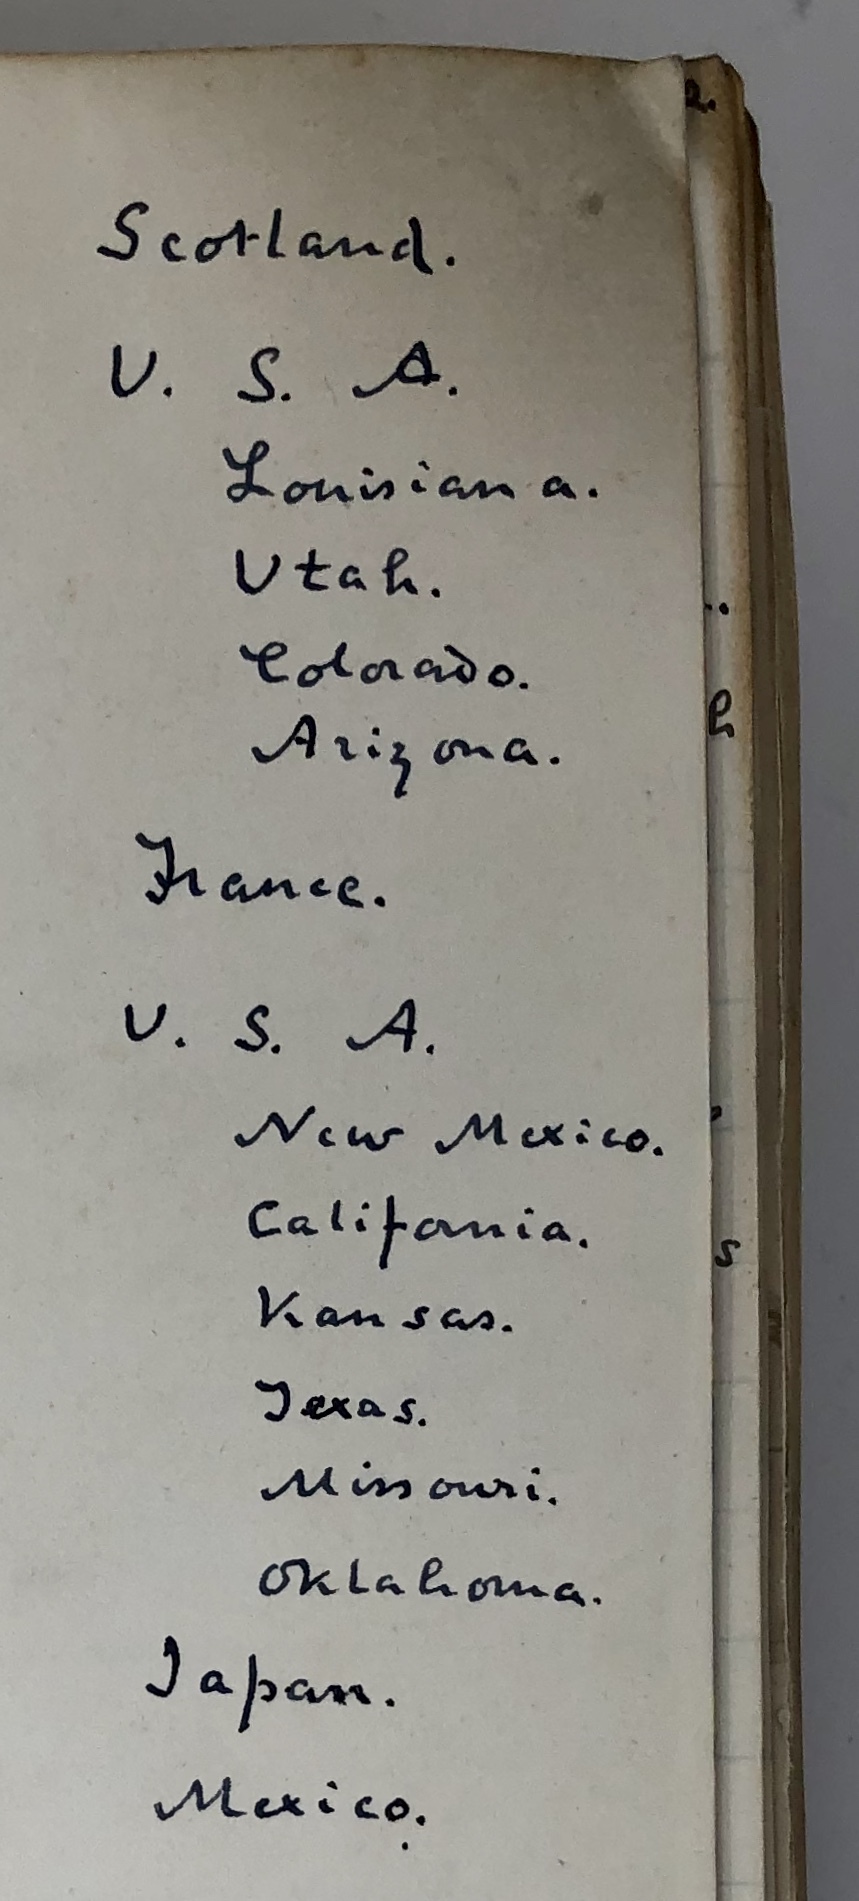 Scotland.
U. S. A.
Louisiana.
Utah.
Colorado.
Arizona.
France.
U. S. A.
New Mexico.
California.
Kansas.
Texas.
Missouri.
Oklahoma.
Japan.
Mexico.